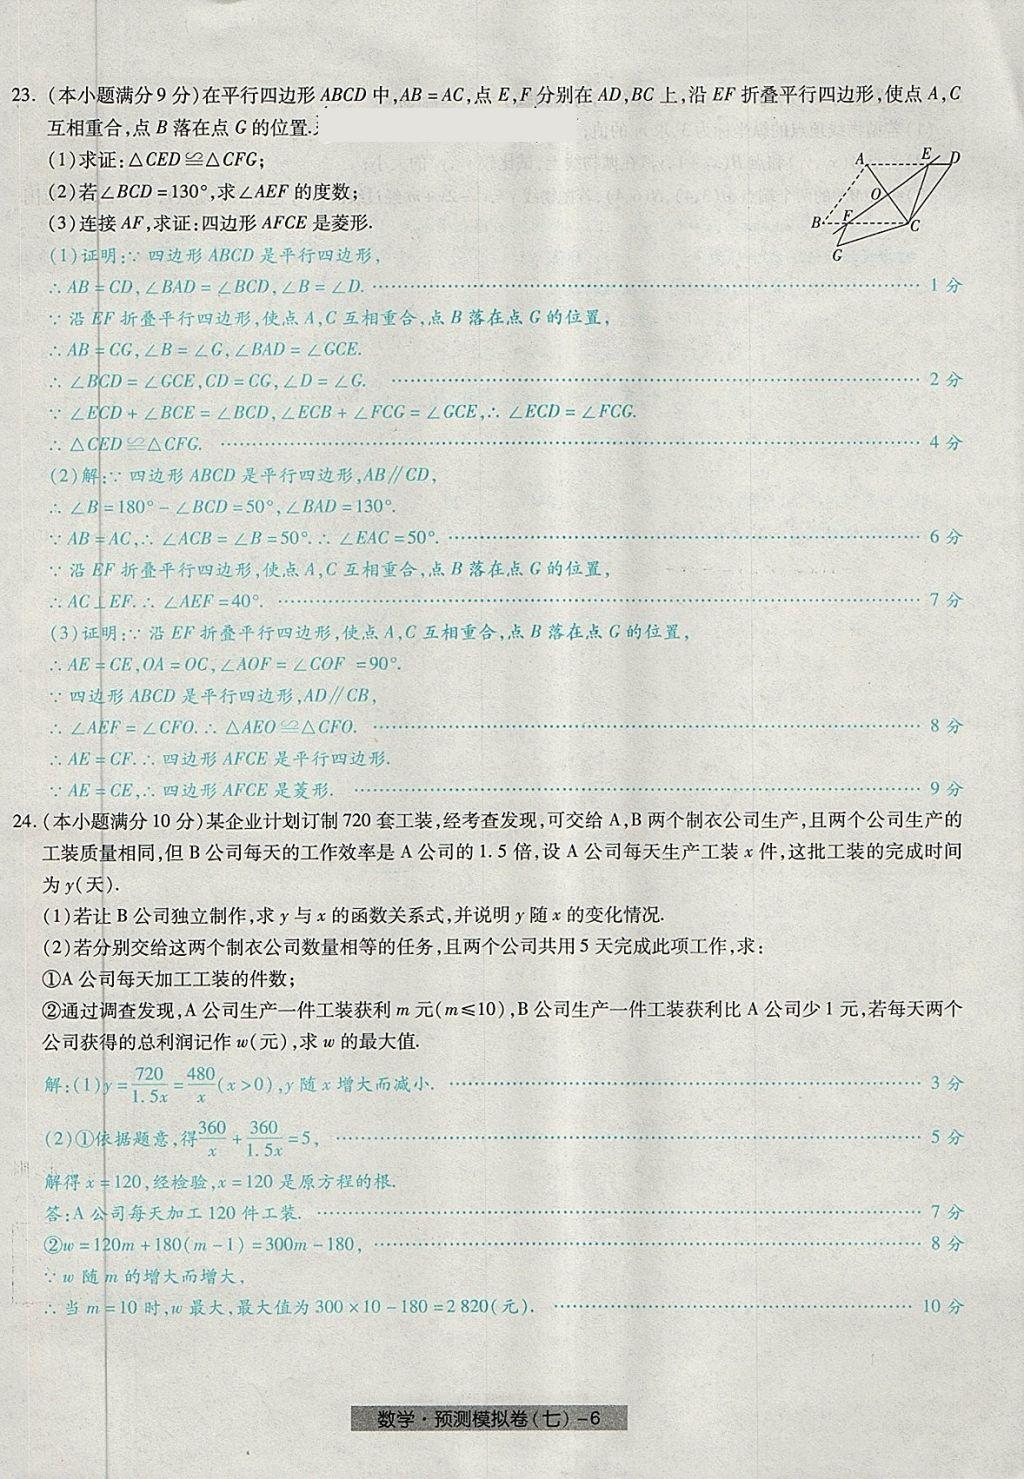 23. (本小题满分9分)在平行四边形ABCD中,AB=AC,点E,F分别在AD,BC上,沿EF折叠平行四边形,使点A,C
互相重合,点B落在点G的位置.
(1)求证:△CED≌△CFG;
(2)若∠BCD=130°,求∠AEF的度数;
(3)连接AF,求证:四边形AFCE是菱形.
A E D
O
B F C
G
(1)证明:∵四边形ABCD是平行四边形,
∴AB=CD,∠BAD=∠BCD,∠B=∠D. 1分
∵沿EF折叠平行四边形,使点A,C互相重合,点B落在点G的位置,
∴AB=CG,∠B=∠G,∠BAD=∠GCE.
∴∠BCD=∠GCE,CD=CG,∠D=∠G. 2分
∵∠ECD+∠BCE=∠BCD,∠ECB+∠FCG=∠GCE,∴∠ECD=∠FCG.
∴△CED≌△CFG. 4分
(2)解:∵四边形ABCD是平行四边形,AB∥CD,
∴∠B=180°-∠BCD=50°,∠BAD=130°.
∵AB=AC,∴∠ACB=∠B=50°.∴∠EAC=50°. 6分
∵沿EF折叠平行四边形,使点A,C互相重合,点B落在点G的位置,
∴AC⊥EF.∴∠AEF=40°. 7分
(3)证明:∵沿EF折叠平行四边形,使点A,C互相重合,点B落在点G的位置,
∴AE=CE,OA=OC,∠AOF=∠COF =90°.
∵四边形ABCD是平行四边形,AD∥CB,
∴∠AEF=∠CFO.∴△AEO≌△CFO. 8分
∴AE=CF.∴四边形AFCE是平行四边形.
∵AE=CE,∴四边形AFCE是菱形. 9分
24. (本小题满分10分)某企业计划订制720套工装,经考查发现,可交给A,B两个制衣公司生产,且两个公司生产的
工装质量相同,但B公司每天的工作效率是A公司的1.5倍,设A公司每天生产工装x件,这批工装的完成时间
为y(天).
(1)若让B公司独立制作,求y与x的函数关系式,并说明y随x的变化情况.
(2)若分别交给这两个制衣公司数量相等的任务,且两个公司共用5天完成此项工作,求:
①A公司每天加工工装的件数;
②通过调查发现,A公司生产一件工装获利m元(m≤10),B公司生产一件工装获利比A公司少1元,若每天两个
公司获得的总利润记作w(元),求w的最大值.
解:(1)y=720/1.5x=480/x(x>0),y随x增大而减小. 3分
(2)①依据题意,得360/x+360/1.5x=5, 5分
解得x=120,经检验,x=120是原方程的根.
答:A公司每天加工120件工装. 7分
②w=120m+180(m-1)=300m-180, 8分
∵w随m的增大而增大,
∴当m=10时,w最大,最大值为300×10-180=2 820(元). 10分
数学·预测模拟卷(七)-6